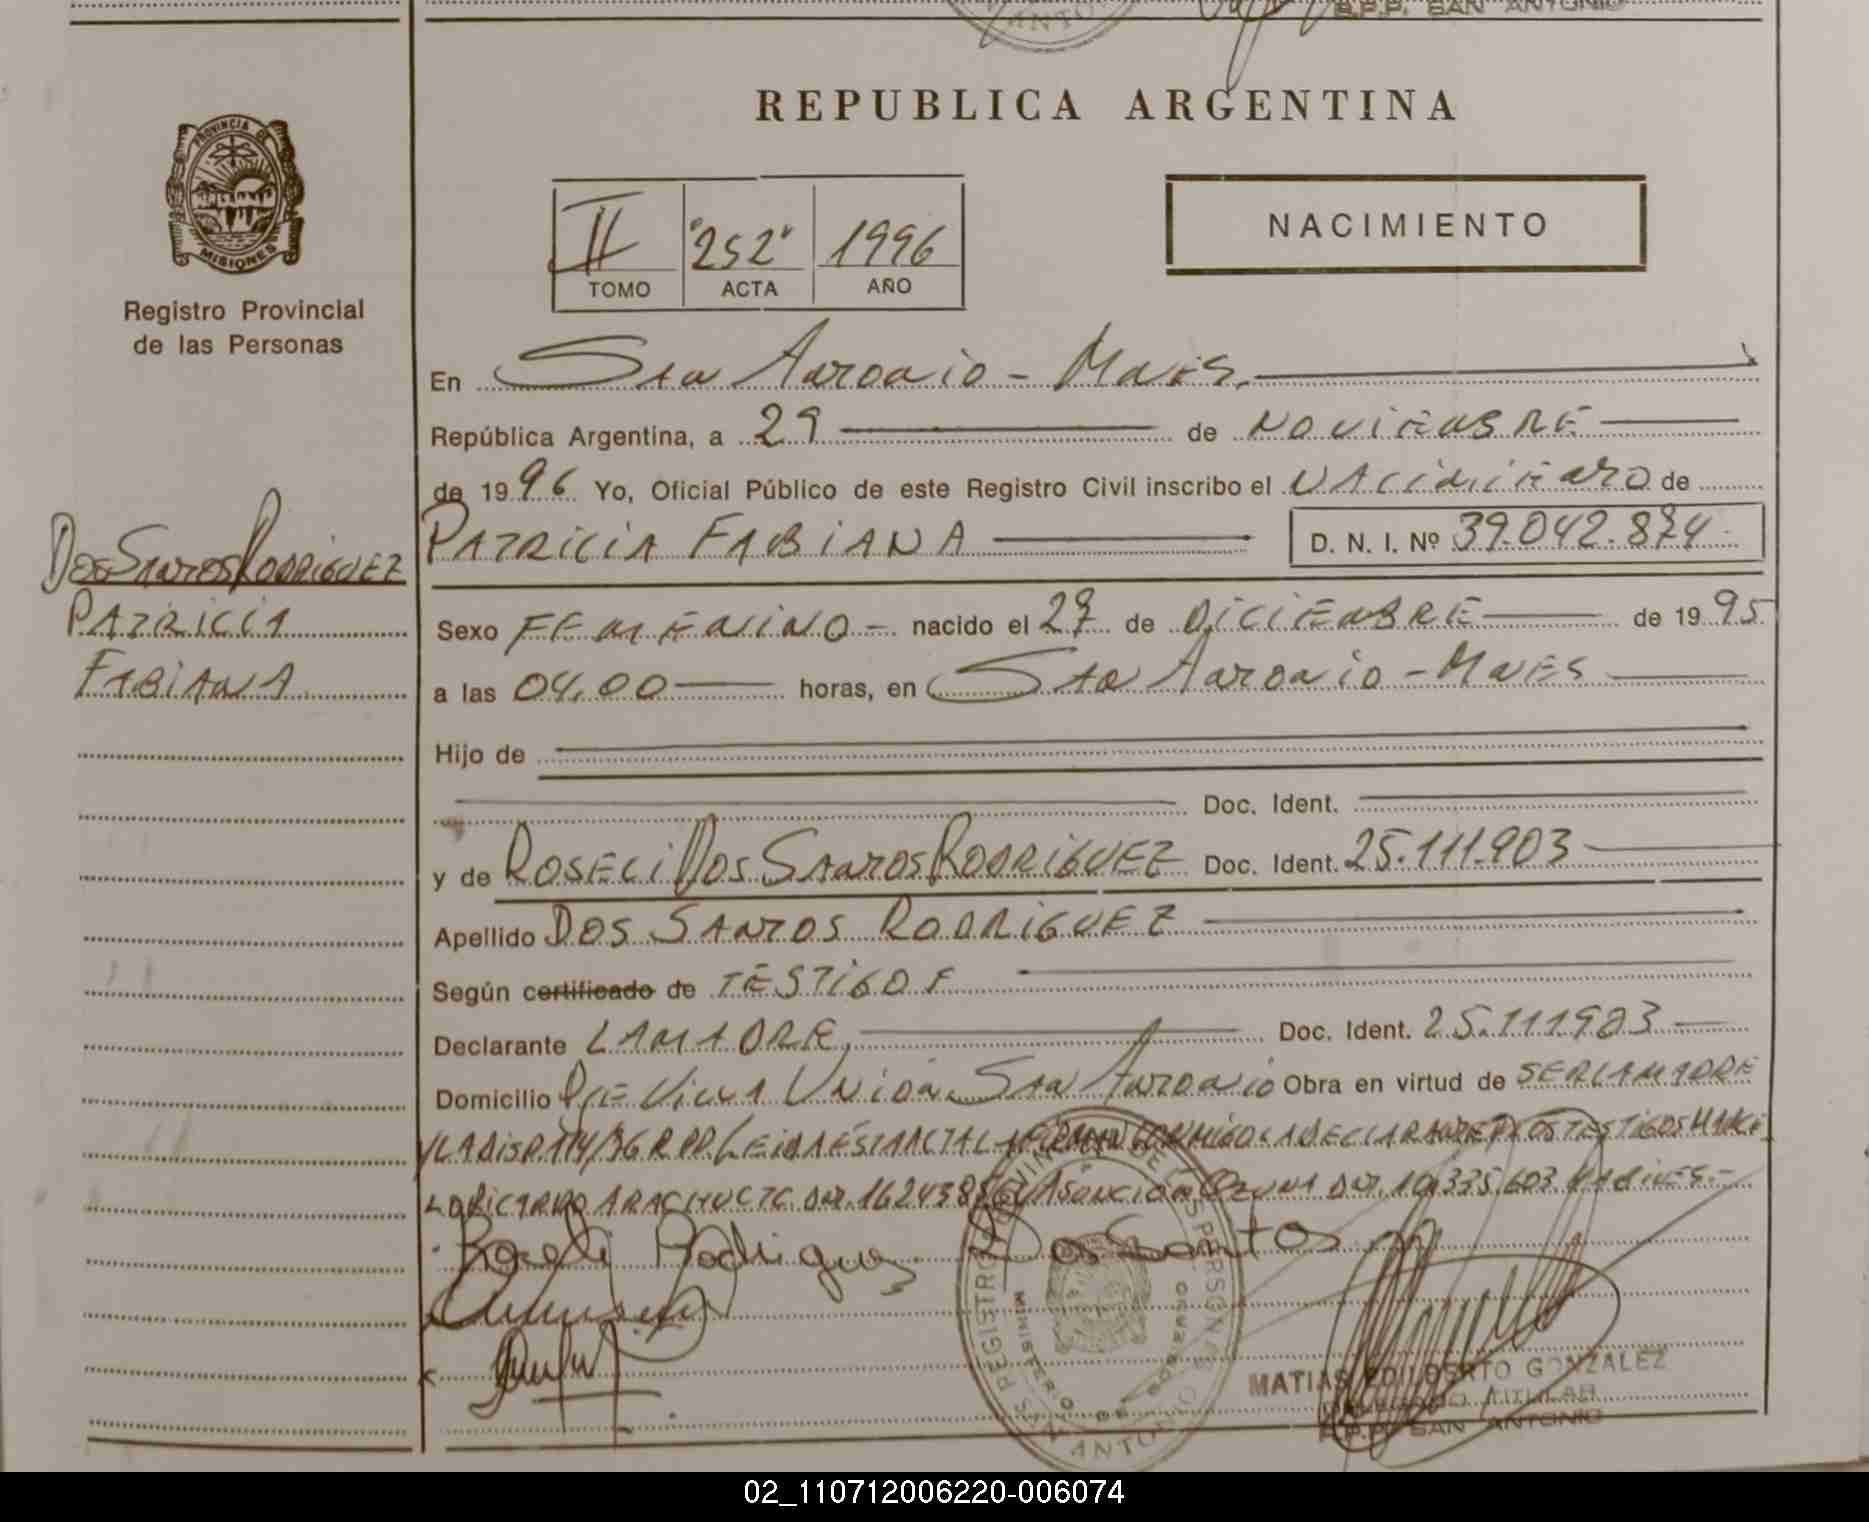 S.P.P. SAN ANTONIO
ANTO
REPUBLICA ARGENTINA
PROVINCIA DE
MISIONES
Registro Provincial
de las Personas
II "252" 1996
TOMO ACTA AÑO
NACIMIENTO
En San Antonio - Mnes.
República Argentina, a 29 de NOVIEMBRE
de 1996 Yo, Oficial Público de este Registro Civil inscribo el NACIMIENTO de
PATRICIA FABIANA D. N. I. Nº 39.042.874
DOS SANTOS RODRIGUEZ
PATRICIA
FABIANA
Sexo FEMENINO - nacido el 27 de DICIEMBRE de 1995
a las 04.00 horas, en San Antonio - MNES
Hijo de
Doc. Ident.
y de ROSELI DOS SANTOS RODRIGUEZ Doc. Ident. 25.111.903
Apellido DOS SANTOS RODRIGUEZ
Según certificado de TESTIGOS
Declarante LA MADRE, Doc. Ident. 25.111903
Domicilio Villa Union San Antonio Obra en virtud de SER LA MADRE
Y LA DISP. LEIDA ESTA ACTA LA FIRMAN CONMIGO LA DECLARANTE Y LOS TESTIGOS
ASUNCION 10.335.603
Roseli Rodrigues Dos Santos
REGISTRO PROVINCIAL DE LAS PERSONAS
MINISTERIO DE GOBIERNO
SAN ANTONIO
MATIAS EDILBERTO GONZALEZ
DELEGADO TITULAR
S.P.P. SAN ANTONIO
02_110712006220-006074